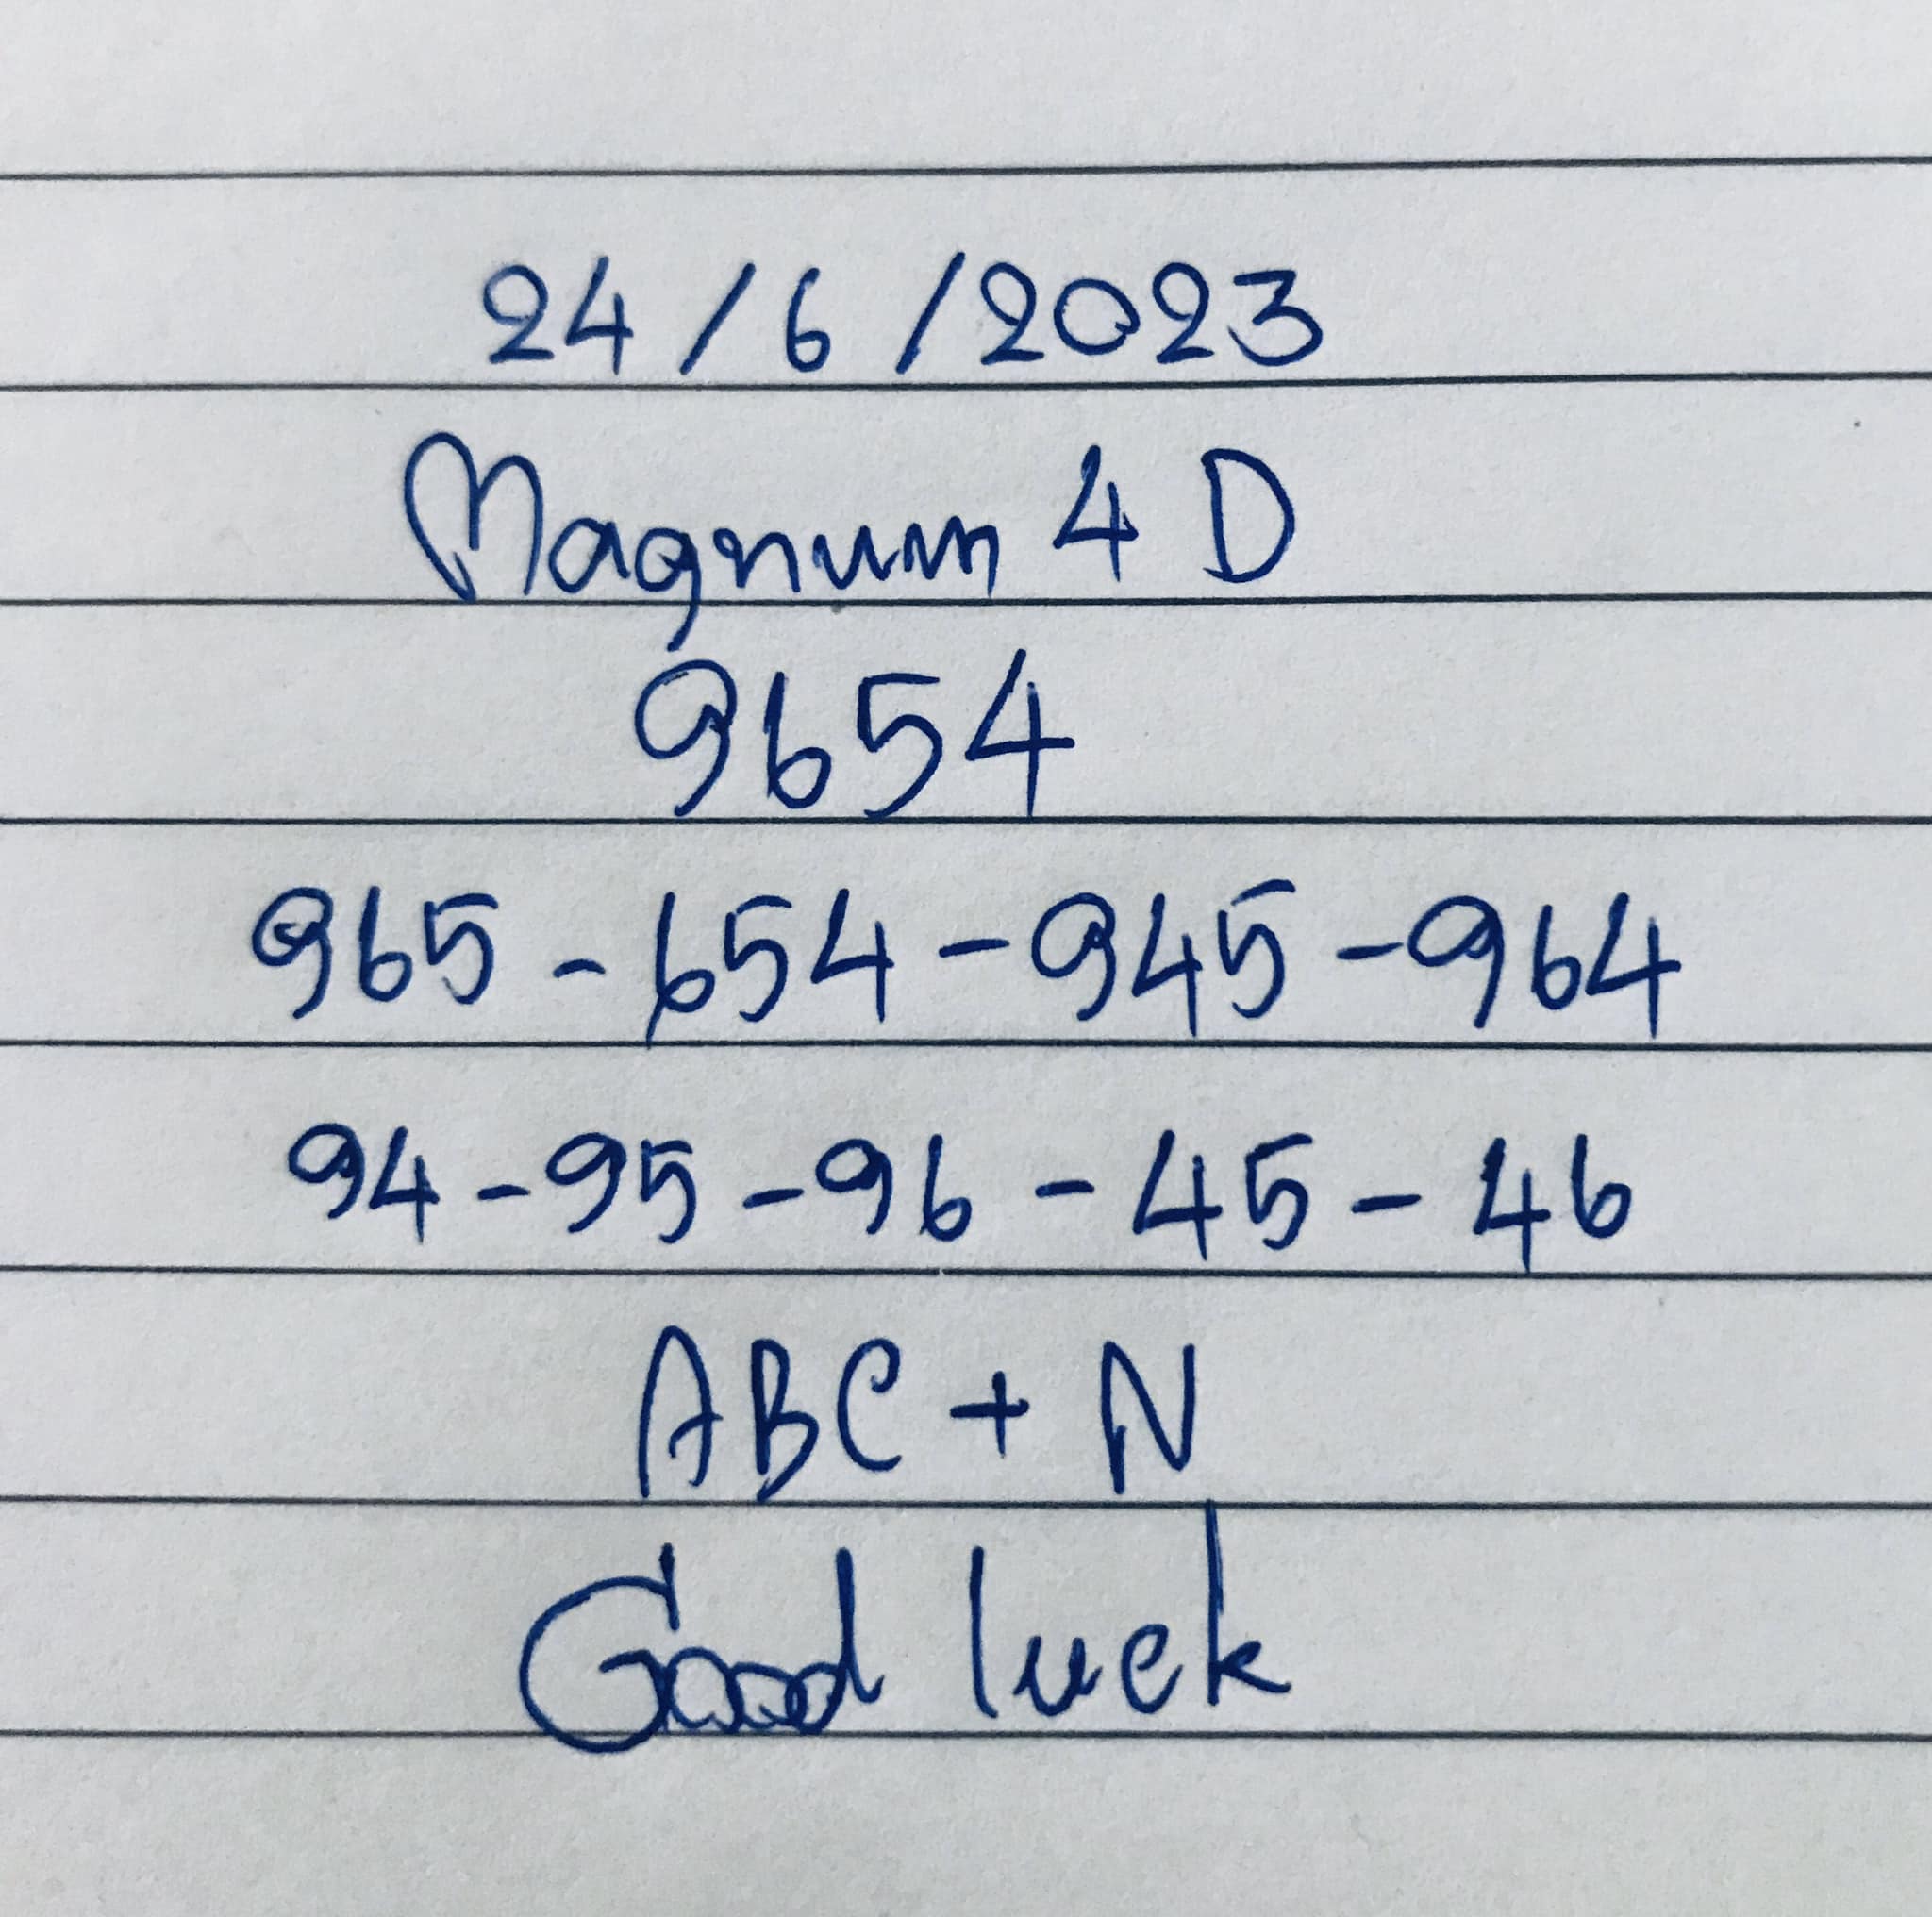 24/6/2023
Magnum 4 D
9654
965-654-945-964
94-95-96-45-46
ABC + N
Good luck